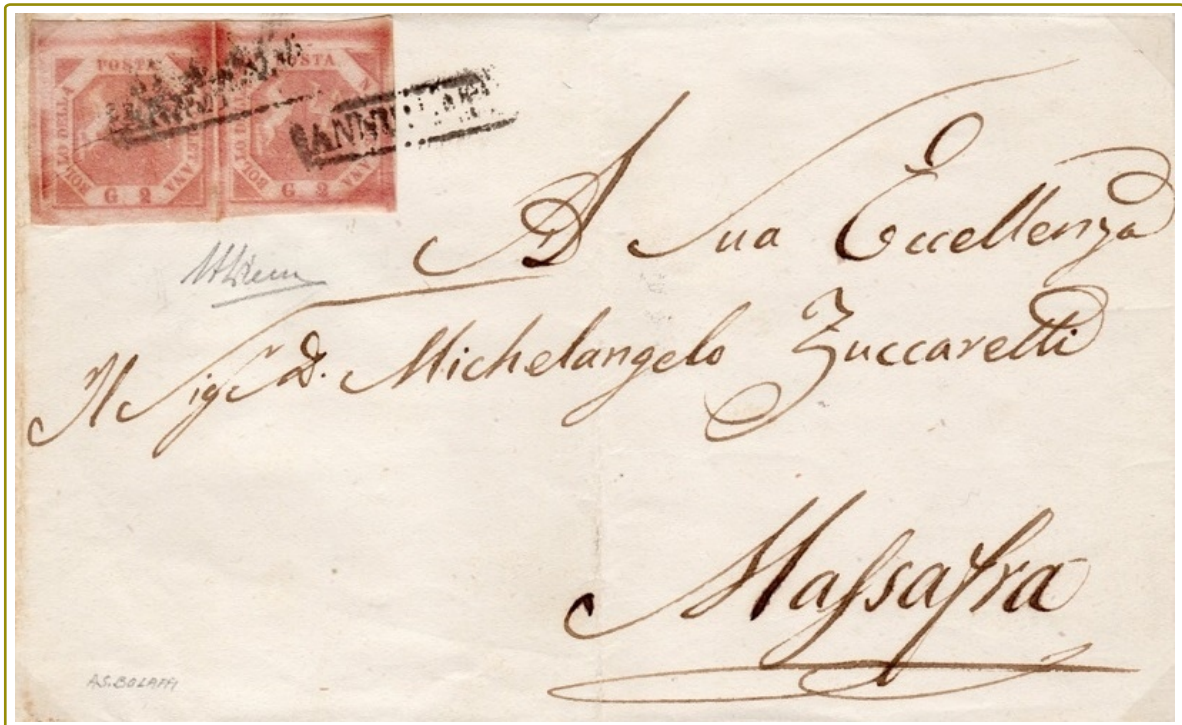 POSTA
BOLLO DELLA
G 2
POSTA
BOLLO DELLA
G 2
ANNULLATO
A Sua Eccellenza
Il Sig.r D. Michelangelo Zuccaretti
Massafra
A.S. BOLAFFI